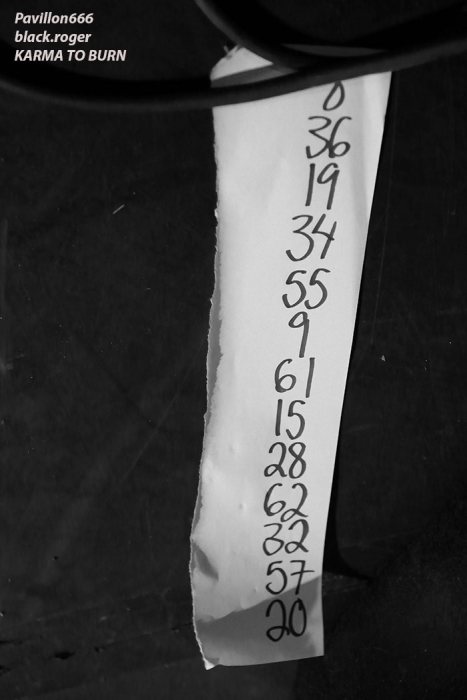 Pavillon666
black.roger
KARMA TO BURN
36
19
34
55
9
61
15
28
62
32
57
20